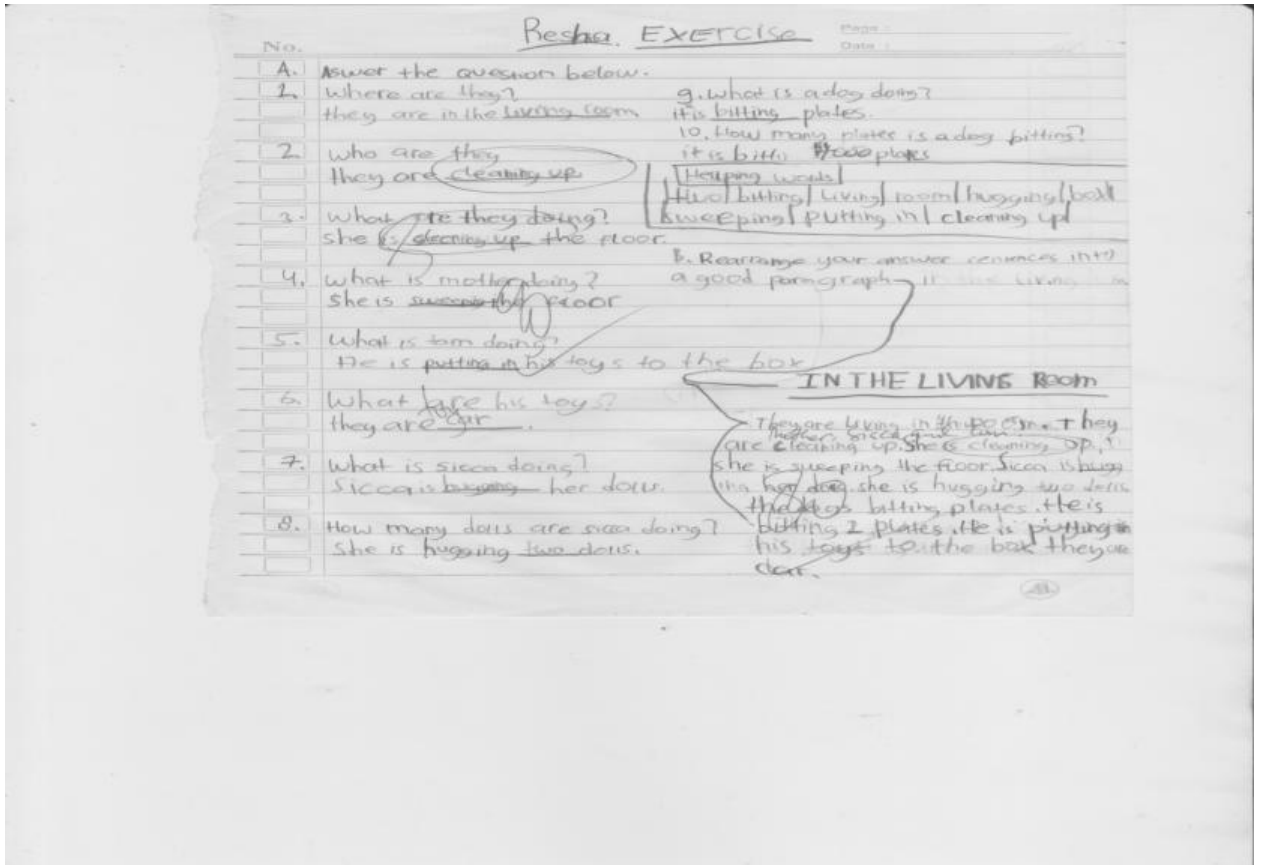 Resha EXERCISE
Page :
Date :
No.
A. Aswer the question below.
1. Where are they?
they are in the living room
2. who are they
they are cleaning up
3. What are they doing?
she is cleaning up the floor.
4. What is mother doing?
She is floor
5. What is tom doing?
He is putting in his toys to the box
6. What are his toys?
they are car.
7. What is sicca doing?
Sicca is her dolls.
8. How many dolls are sicca doing?
She is hugging two dolls.
9. What is a dog doing?
it is bitting plates.
10. How many plates is a dog bitting?
it is plates
Helping words
two / bitting / living / room / hugging / box
sweeping / putting in / cleaning up
B. Rearrange your answer into
a good paragraph in the living
IN THE LIVING Room
They are living in They
are cleaning up. She is cleaning up.
she is sweeping the floor. Sicca is hugg
ing her dog. she is hugging two dolls
bitting plates. He is
bitting 2 plates. He is putting in
his toys to the box they are
car.